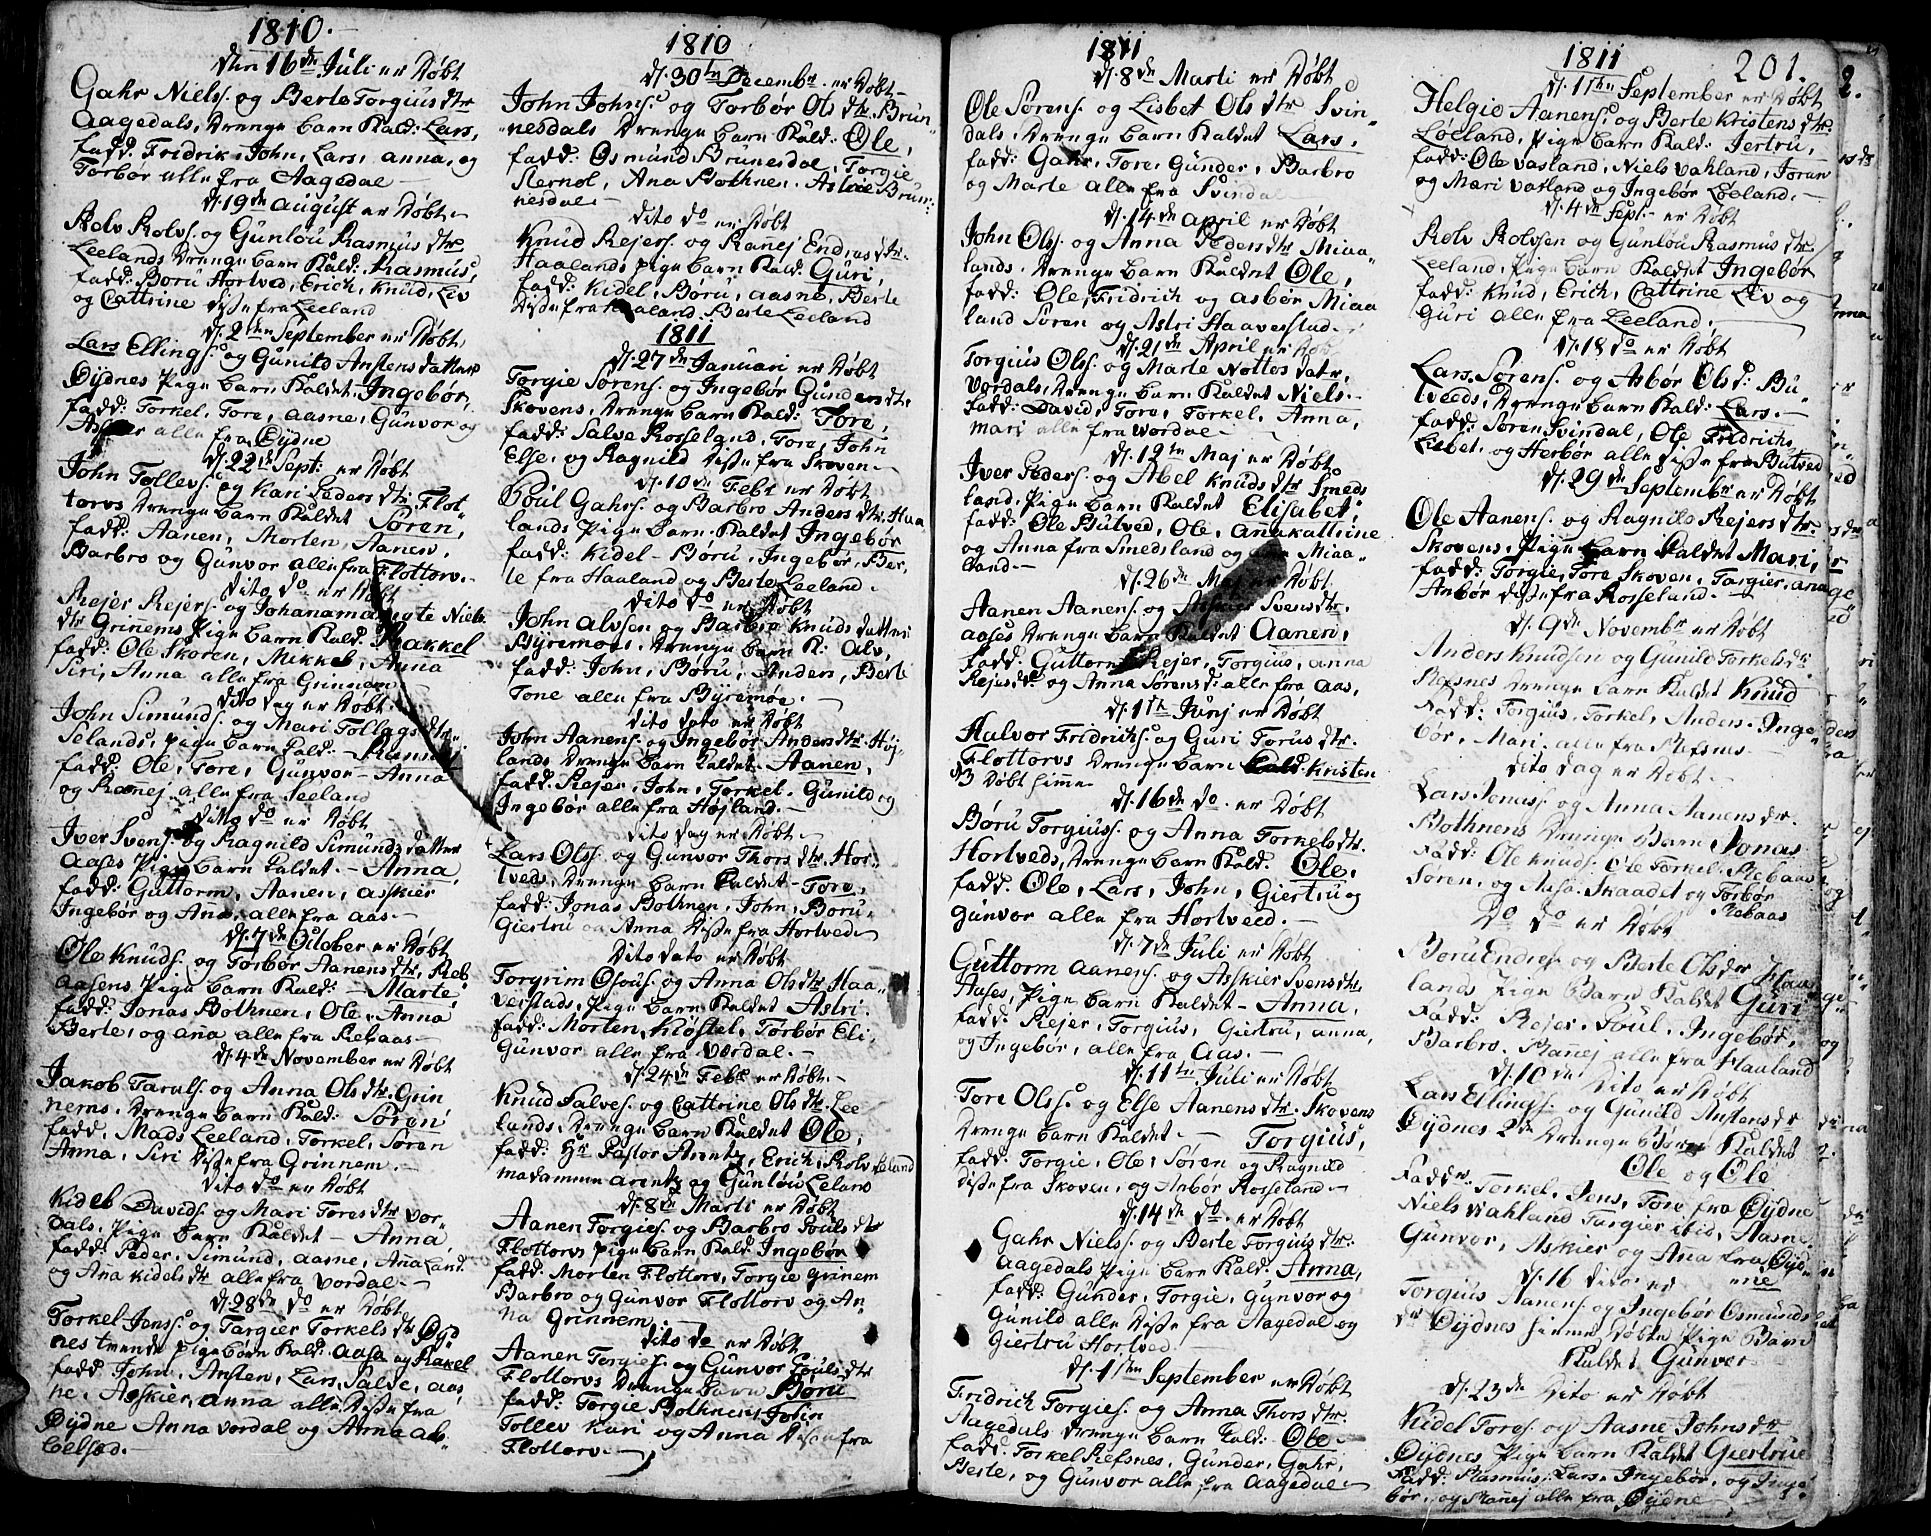 1810.
den 16de Juli er Døbt
Gahr Niels. og Berte Torgius dtr
Aagedals, Drenge barn Kald: Lars,
fadd: Fridrik, John, Lars, anna, og
Torbor alle fra Aagedal
d. 19de August er Døbt
Rolv Rolvs. og Gunlou Rasmus dtr
Leelands Drenge barn Kald: Rasmus,
fadd: Boru Hortved, Erich, Knud, Liv
og Cattrine disse fra Leeland
d. 2den September er Døbt,
Lars Ellings. og Gunild Anstens datter
Øydnes Pige barn Kaldet Ingebor,
fadd: Torkel, Tore, aasne, Gunvor og
alle fra Øydne
d. 22de Sept: er Døbt
John Tollevs. og Kari Peders dtr: Flot"
torvs Drenge barn Kaldet Søren,
fadd: Aanen, Morten, Aanen,
Barbro og Gunvor alle fra Flottorv.
dito do er Døbt
Rejer Rejers. og Johana Niels
dtr Grinnems Pige barn Kald: Rakkel
fadd: Ole Skoren, Mikkel, Anna
Siri, Anna alle fra Grinnem
dito dag er Døbt
John Simunds. og Mari Tollags dtr.
Selands, pige barn Kald:
fadd: Ole, Tore, Gunvor Anna
og Ranej alle fra Seeland
ditto do er Døbt
Iver Svens. og Ragnild Simunds datter
Aases Pige barn Kaldet Anna,
fadd: Guttorm, Aanen, askier
Ingebor og Ana, alle fra aas.
d. 7de October er Døbt
Ole Knuds. og Torbor Aanens dtr, Reb
aasens Pige barn Kald: Marte,
fadd: Jonas Bothnen, Ole, Anna
Berte, og ana alle fra Rebaas
d. 4de November er Døbt
Jakob Taralds. og Anna Ols dtr. Grin
nems. Drenge barn Kald: Søren
fadd. Mads Leeland, Torkel, Søren
Anna, Siri disse fra Grinnem.
dito do er Døbt
Kidel Davids. og Mari Tores dtr Vor"
dals, Pige barn Kaldet Anna
fadd: Peder, Simund, aasne, Ana Land.
og Ana Kidels dtr alle fra Vordal
d. 28de do er Døbt
Torkel Jons. og Targier Torkels dtr Øyd
nes tvende pige børn Kald: Aasa og Rakel
fadd John, Ansten, Lars, Salve, aas
ne, Askier, anna alle disse fra
Øydne Anna Vordal og Anna

1810
d. 30te Decembr. er Døbt
John Johns. og Torbor Ols dtr Brun"
nesdals Drenge barn Kald: Ole,
fadd: Osmund Brunesdal, Torgie
Sternol, Ana Bothnen, Astrie Brun:
nesdal
dito do er Døbt
Knud Rejers. og Ranej Endres dtr.
Haalands pige barn Kald: Guri,
fadd: Kidel, Boru, aasne, Berte
disse fra Haaland Berte Leeland
1811
d. 27de Januari er Døbt
Torgie Sørens. og Ingebor Gunders dtr
Skovens, Drenge barn Kald: Tore,
fadd: Salve Rosseland, Tore, John
Else, og Ragnild disse fra Skoven
d. 10de Febr er Døbt
Poul Gahrs. og Barbro Anders dtr. Haa
lands Pige barn Kaldet Ingebor
fadd: Kidel Boru, Ingebor, Ber,
te fra Haaland og Berte Leeland.
dito do er Døbt
John Alvsen og Barbro Knuds datter
Byremoes, Drenge barn K: Alv,
fadd: John, Boru, Anders, Berte
Tone alle fra Byremoe.
dito dato er Døbt
John Aanens. og Ingebor Anders dtr. Høj
lands Drenge barn Kaldet Aanen,
fadd: Rejer, John, Torkel, Gunild og
Ingebor alle fra Højland.
dito dag er Døbt
Lars Ols. og Gunvor Thors dtr Hor,
tveds, Drenge barn Kaldet Tore,
fadd: Jonas Bothnen, John, Boru
Giertru og Anna disse fra Hortved
dito dato er Døbt
Torgrim Osous. og Anna Ols dtr Haa,
verstads, Pige barn Kaldet Astri
fadd: Morten, Kløstel, Torbor Eli
Gunvor alle fra Vordal.
d. 24de Febr er Døbt.
Knud Salves. og Cattrine Ols dtr. Lee
lands, Drenge barn Kaldet Ole,
fadd: Hr Pastor Arentz, Erich, Rolv Leland
madammen arentz og Gunlou Leland
d. 8de Marti er Døbt
Aanen Torgies. og Barbro Pouls dtr
Flottorvs pige barn Kald: Ingebor
fadd: Morten Flottorv, Torgie Grinem
Barbro og Gunvor Flottorv og An,
na Grinnem
dito do er Døbt
Aanen Torgies. og Gunvor Pouls dtr
Flottorvs Drenge barn Boru
fadd: Torgie Bothnen John
Tollev Kari og Anna disse fra
Flottorv

1811
d. 8de Marti er Døbt
Ole Sørens. og Lisbet Ols dtr Svin"
dals, Drenge barn Kaldet Lars,
fadd: Gahr, Tore, Gunder, Barbro
og Marte alle fra Svindal
d. 14de april er Døbt
John Ols. og Anna Peders dtr Miaa"
lands. Drenge barn Kaldet Ole,
fadd: Ole, Fridrich og Asbor Miaa
land Søren og Astri Haaverstad
d. 21de April er Døbt
Torgius Ols. og Marte Nottos datr,
Vordals, Drenge barn Kaldet Niels.
fadd: David, Tore, Torkel, Anna,
mari alle fra Vordal
d. 12te Maj er Døbt
Iver Peders. og Abel Knuds dtr Smeds
land, Pige barn Kaldet Elisabet
fadd: Ole Butved, Ole, Anakattrine
og Anna fra Smedsland og Miaa
land
d. 26de Maj er Døbt
Aanen Aanens. og Askier Svens dtr.
aases Drenge barn Kaldet Aanen,
fadd: Guttorm, Rejer, Torgius, anna
Rejesdr og Anna Sørens dr alle fra Aas,
d. 1te Junj er Døbt
Halvor Fridrichs. og Guri Torus dtr.
Flottorvs Drenge barn Kald. Kristen
Døbt hiemme
d. 16de do. er Døbt
Boru Torgius. og Anna Torkels dtr.
Hortveds, Drenge barn Kald. Ole,
fadd: Ole, Lars, John, Giertru og
Gunvor alle fra Hortveed.
d. 7de Juli er Døbt
Guttorm aanens. og Askier Svens dtr,
Aases, Pige barn Kaldet Anna,
fadd: Rejer, Torgius, Giertru, anna,
og Ingebor, alle fra Aas.
d. 11te Juli er Døbt
Tore Ols. og Else Aanens dtr. Skovens
Drenge barn Kaldet Torgius,
fadd: Torgie, Ole, Søren og Ragnild
disse fra Skoven, og Anbor Rosseland
d. 14de do. er Døbt
Gahr Niels. og Berte Torgius dtr.
Aagedals Pige barn Kald: Anna,
fadd: Gunder, Torgie, Gunvor og
Gunild alle disse fra Aagedal og
Giertru Hortved
d. 1ste September er Døbt
Fridrich Torgies. og Anna Thors dtr.
Aagedals Drenge barn Kald: Ole
fadd: Torkel Refsnes, Gunder, Gahr,
Berte, og Gunvor alle fra Aagedal

1811 201.
d. 1ste September er Døbt
Helgie Aanens. og Berte Kristens dtr.
Løeland, Pige barn Kald: Jertru,
fadd: Ole Vasland, Niels Vahland, Joran
og Mari Vatland og Ingebor Løeland.
d. 4de Sept. er Døbt
Rolv Rolvsen og Gunlou Rasmus dtr.
Leeland, Pige barn Kaldet Ingebor
fadd: Knud, Erich, Cattrine Liv og
Guri alle fra Leeland.
d. 18 do er Døbt
Lars Sørens. og Asbor Ols d: Bu"
tveeds, Drenge barn Kald: Lars.
fadd: Søren Svindal, Ole Fridrichs
Lisbet, og Herbor alle disse fra Butved
d. 29de September er Døbt
Ole Aanens. og Ragnild Rejers dtr.
Skovens, Pige barn Kaldet Mari,
fadd: Torgie, Tore Skoven, Targier, ana
Anbor disse fra Rosseland.
d. 9de Novembr er Døbt
Anders Knudsen og Gunild Torkels dr
Refsnes Drenge barn Kaldet Knud
Fadd: Torgius, Torkel, Anders, Inge
bor, Mari alle fra Refsnes
dito dag er Døbt
Lars Jonas. og Anna Aanens dr.
Bothnens Drenge Barn Jonas
Fadd: Ole Knuds. Ole Torkel. Rebaas
Søren. og Aasa Skaadet og Torbor
Rebaas
Do do er Døbt
Boru Endres. og Berte Ols dr Haa
lands Pige Barn Kaldet Guri
Fadd: Rejer, Poul, Ingebor,
Barbro, Ranej alle fra Haaland
d. 10de dito er Døbt
Lars Ellings. og Gunild Anstens dr
Øydnes 2de Drenge Børn Kaldet
Ole og Ole
Faddr. Torkel, Jens, Tore fra Øydne
Niels Vahland Targier ibid, Aasne
Gunvor, Askier og Ana fra Øyd"
ne
d. 16 dito er
Torgius Aanens. og Ingebor Osmunds
dr Øydnes hieme Døbte Pige Barn
Kaldet Gunvor
d. 23de dito er Døbt
Kidel Tores. og Aasne Johns dtr
Øydnes Pige barn Kaldet Giertrue
Fadd: Rasmus, Lars, Ingebor, og Inge
bor, og Ranej alle fra Øydne